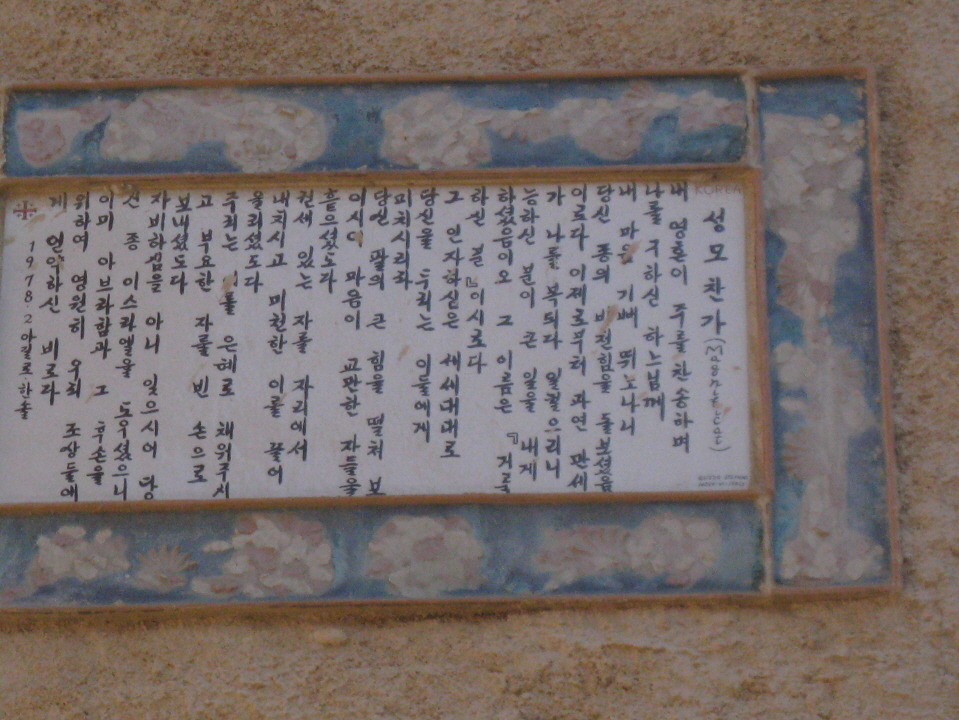 KOREA
성모찬가(Magnificat)
내 영혼이 주를 찬송하며
나를 구하신 하느님께
내 마음 기뻐 뛰노나니
당신 종의 비천함을 돌보셨음
이로다 이제로부터 과연 만세
가 나를 복되다 일컬으리니
능하신 분이 큰 일을 내게
하셨음이오 그 이름은 『거룩
하신 분』이시로다
그 인자하심은 세세대대로
당신을 두리는 이들에게
미치시리라
당신 팔의 큰 힘을 떨쳐 보
이시어 마음이 교만한 자들을
흩으셨도다
권세 있는 자를 자리에서
내치시고 미천한 이를 끌어
올리셨도다
주리는 이를 은혜로 채워주시
고 부요한 자를 빈 손으로
보내셨도다
자비하심을 아니 잊으시어 당
신 종 이스라엘을 도우셨으니
이미 아브라함과 그 후손을
위하여 영원히 우리 조상들에
게 언약하신 비로다
1978.2 아릴로한돌